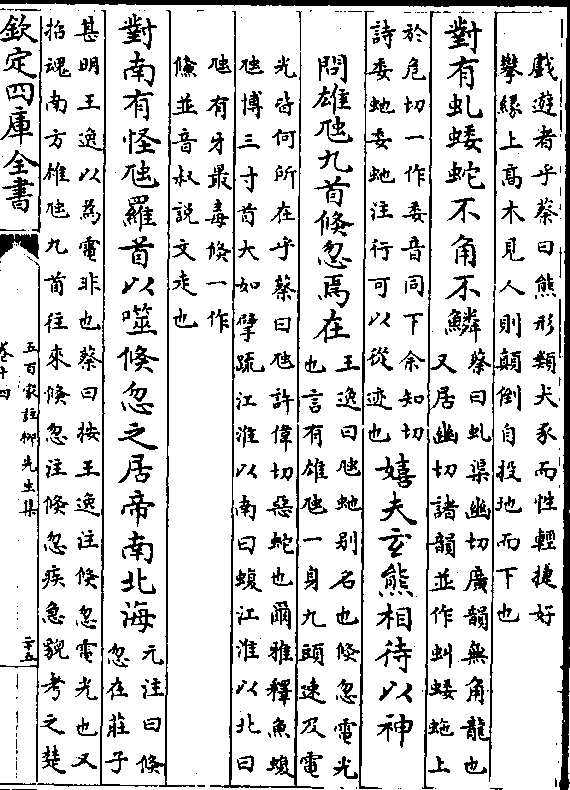 戲遊者乎蔡曰熊形類犬豕而性輕捷好
攀縁上髙木見人則顛倒自投地而下也
對有虬蜲蛇不角不鱗
蔡曰虬渠幽切廣韻無角龍也
又居幽切諸韻並作虯蜲虵上
於危切一作委音同下余知切
詩委虵委虵注行可以從迹也
嬉夫玄熊相待以神
問雄虺九首倏忽焉在
王逸曰虺虵别名也倏忽電光
也言有雄虺一身九頭速及電
光皆何所在乎蔡曰虺許偉切惡蛇也爾雅釋魚蝮
虺博三寸首大如擘疏江淮以南曰蝮江淮以北曰
虺有牙最毒倏一作
儵並音叔説文走也
對南有怪虺羅首以噬倏忽之居帝南北海
元注曰倏
忽在莊子
甚明王逸以為電非也蔡曰按王逸注倏忽電光也又
招魂南方雄虺九首往來倏忽注倏忽疾急貌考之楚
欽定四庫全書
五百家註柳先生集
卷十四
二十五